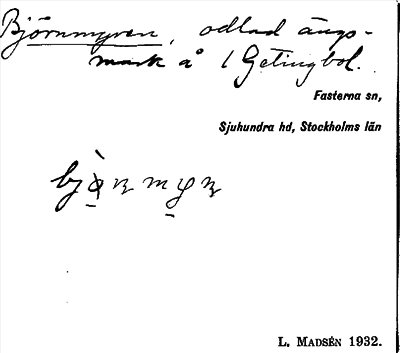 Björnmyren, odlad ängs-
mark å 1 Getingbol.
Fasterna sn,
Sjuhundra hd, Stockholms län
L. MADSÉN 1932.